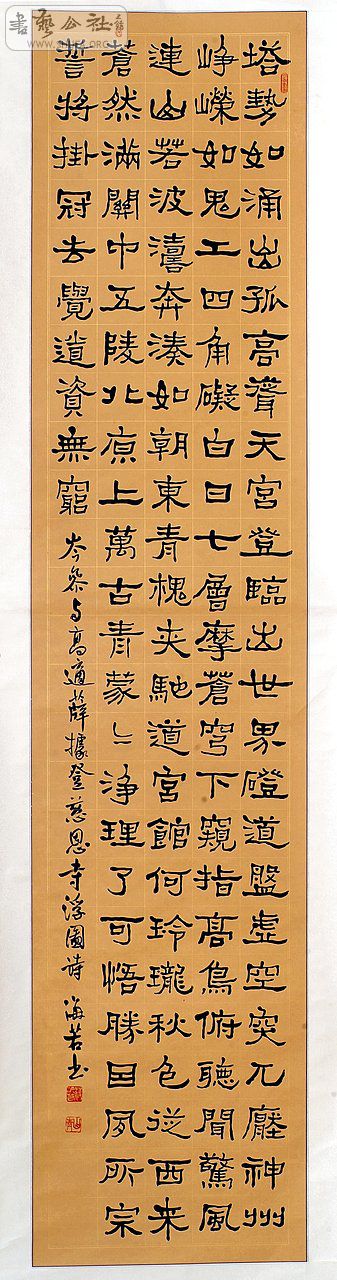 塔勢如涌出孤高聳天宮登臨出世界磴道盤虛空突兀壓神州
崢嶸如鬼工四角礙白日七層摩蒼穹下窺指高鳥俯聽聞驚風
連山若波濤奔湊如朝東青槐夾馳道宮館何玲瓏秋色從西来
蒼然滿關中五陵北原上萬古青蒙〻淨理了可悟勝因夙所宗
誓將掛冠去覺道資無窮
岑參与高適薛據登慈恩寺浮圖詩 海若书
書藝公社